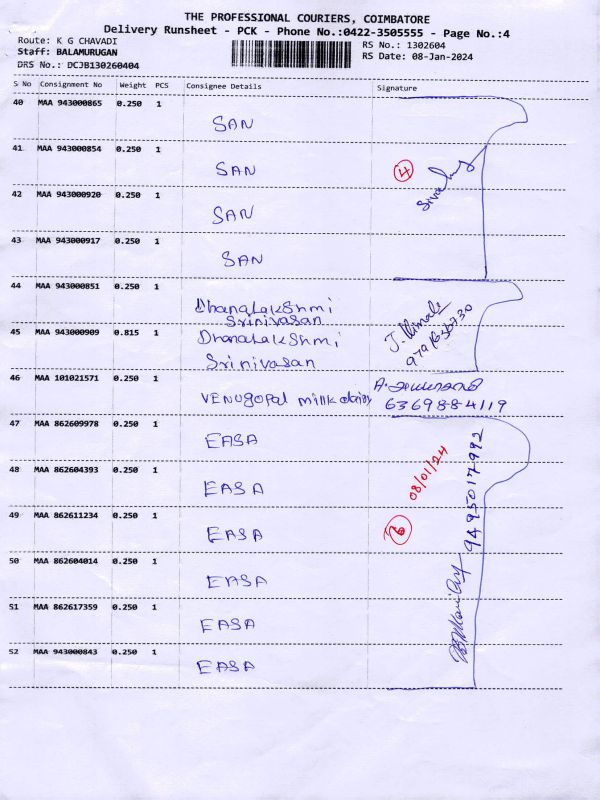 THE PROFESSIONAL COURIERS, COIMBATORE
Delivery Runsheet - PCK - Phone No.:0422-3505555 - Page No.:4
Route: K G CHAVADI
RS No.: 1302604
Staff: BALAMURUGAN
RS Date: 08-Jan-2024
DRS No.: DCJB130260404
S No Consignment No Weight PCS Consignee Details Signature
40 MAA 943000865 0.250 1
SAN
41 MAA 943000854 0.250 1
SAN
4
42 MAA 943000920 0.250 1
SAN
43 MAA 943000917 0.250 1
SAN
44 MAA 943000851 0.250 1
Dhanalakshmi
Srinivasan
45 MAA 943000909 0.815 1
Dhanalakshmi
Srinivasan
46 MAA 101021571 0.250 1
VENUgopal millk dairy
6369884119
47 MAA 862609978 0.250 1
EASA
48 MAA 862604393 0.250 1
EASA
08/01/24
9495017992
49 MAA 862611234 0.250 1
EASA
6
50 MAA 862604014 0.250 1
EASA
51 MAA 862617359 0.250 1
EASA
52 MAA 943000843 0.250 1
EASA